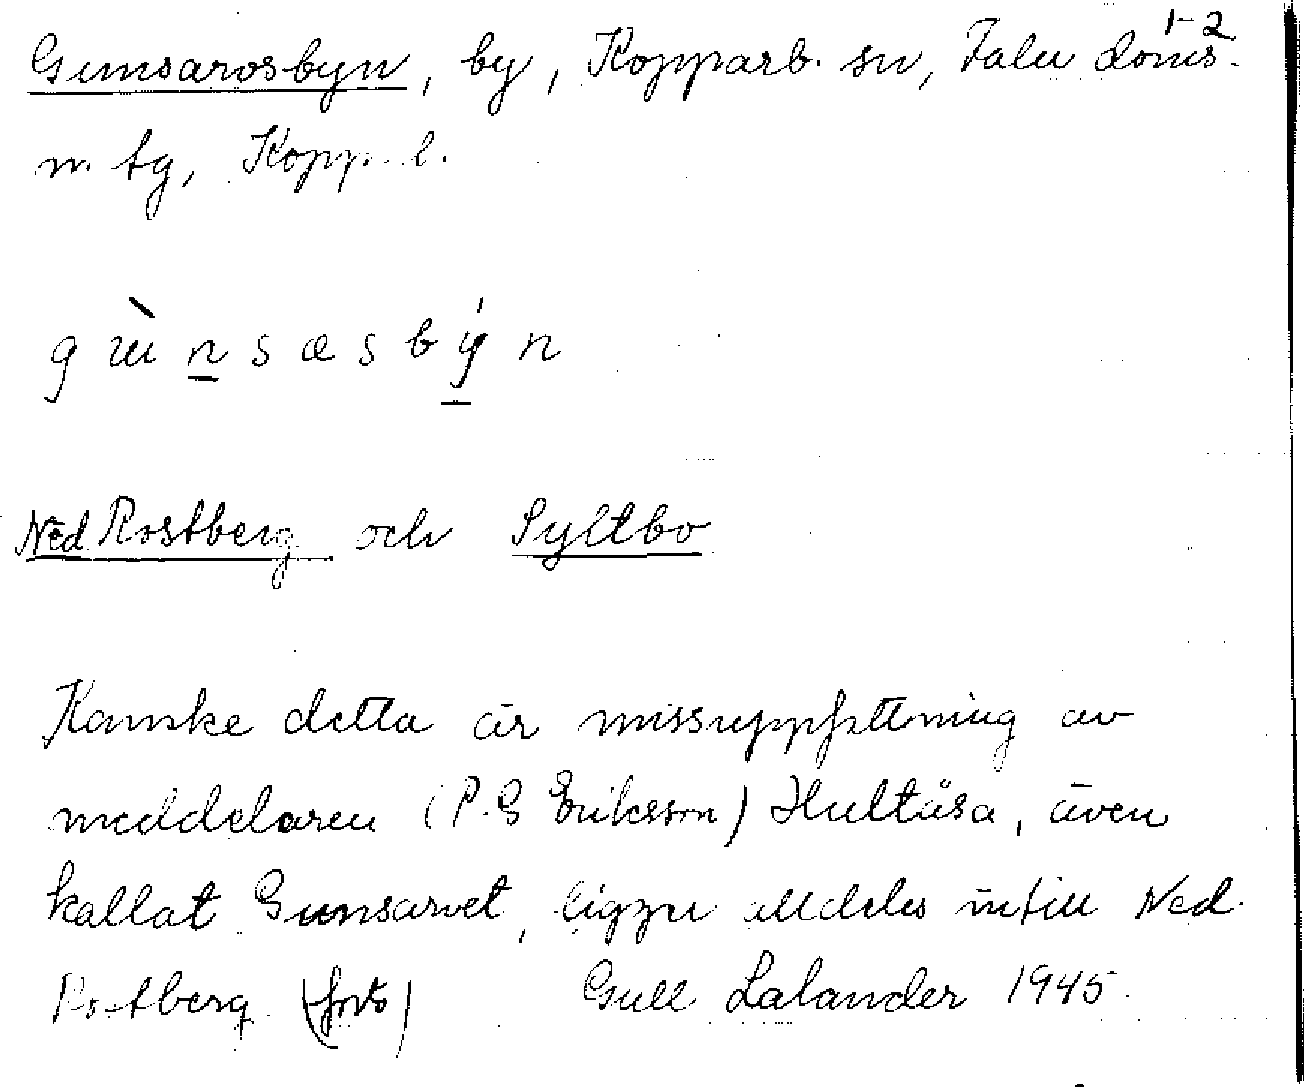 1-2
Gunsarosbyn, by, Kopparb. sn, Falu doms.
m. tg, Kopp. l.
g ɯ̀ n s æ s b ý n
Ned Rostberg och Syltbo
Kanske detta är missuppfattning av
meddelaren (P.G Eriksson) Hultåsa, även
kallat Gunsarvet, ligger alldeles intill Ned
Rostberg (forts)    Gull Lalander 1945.